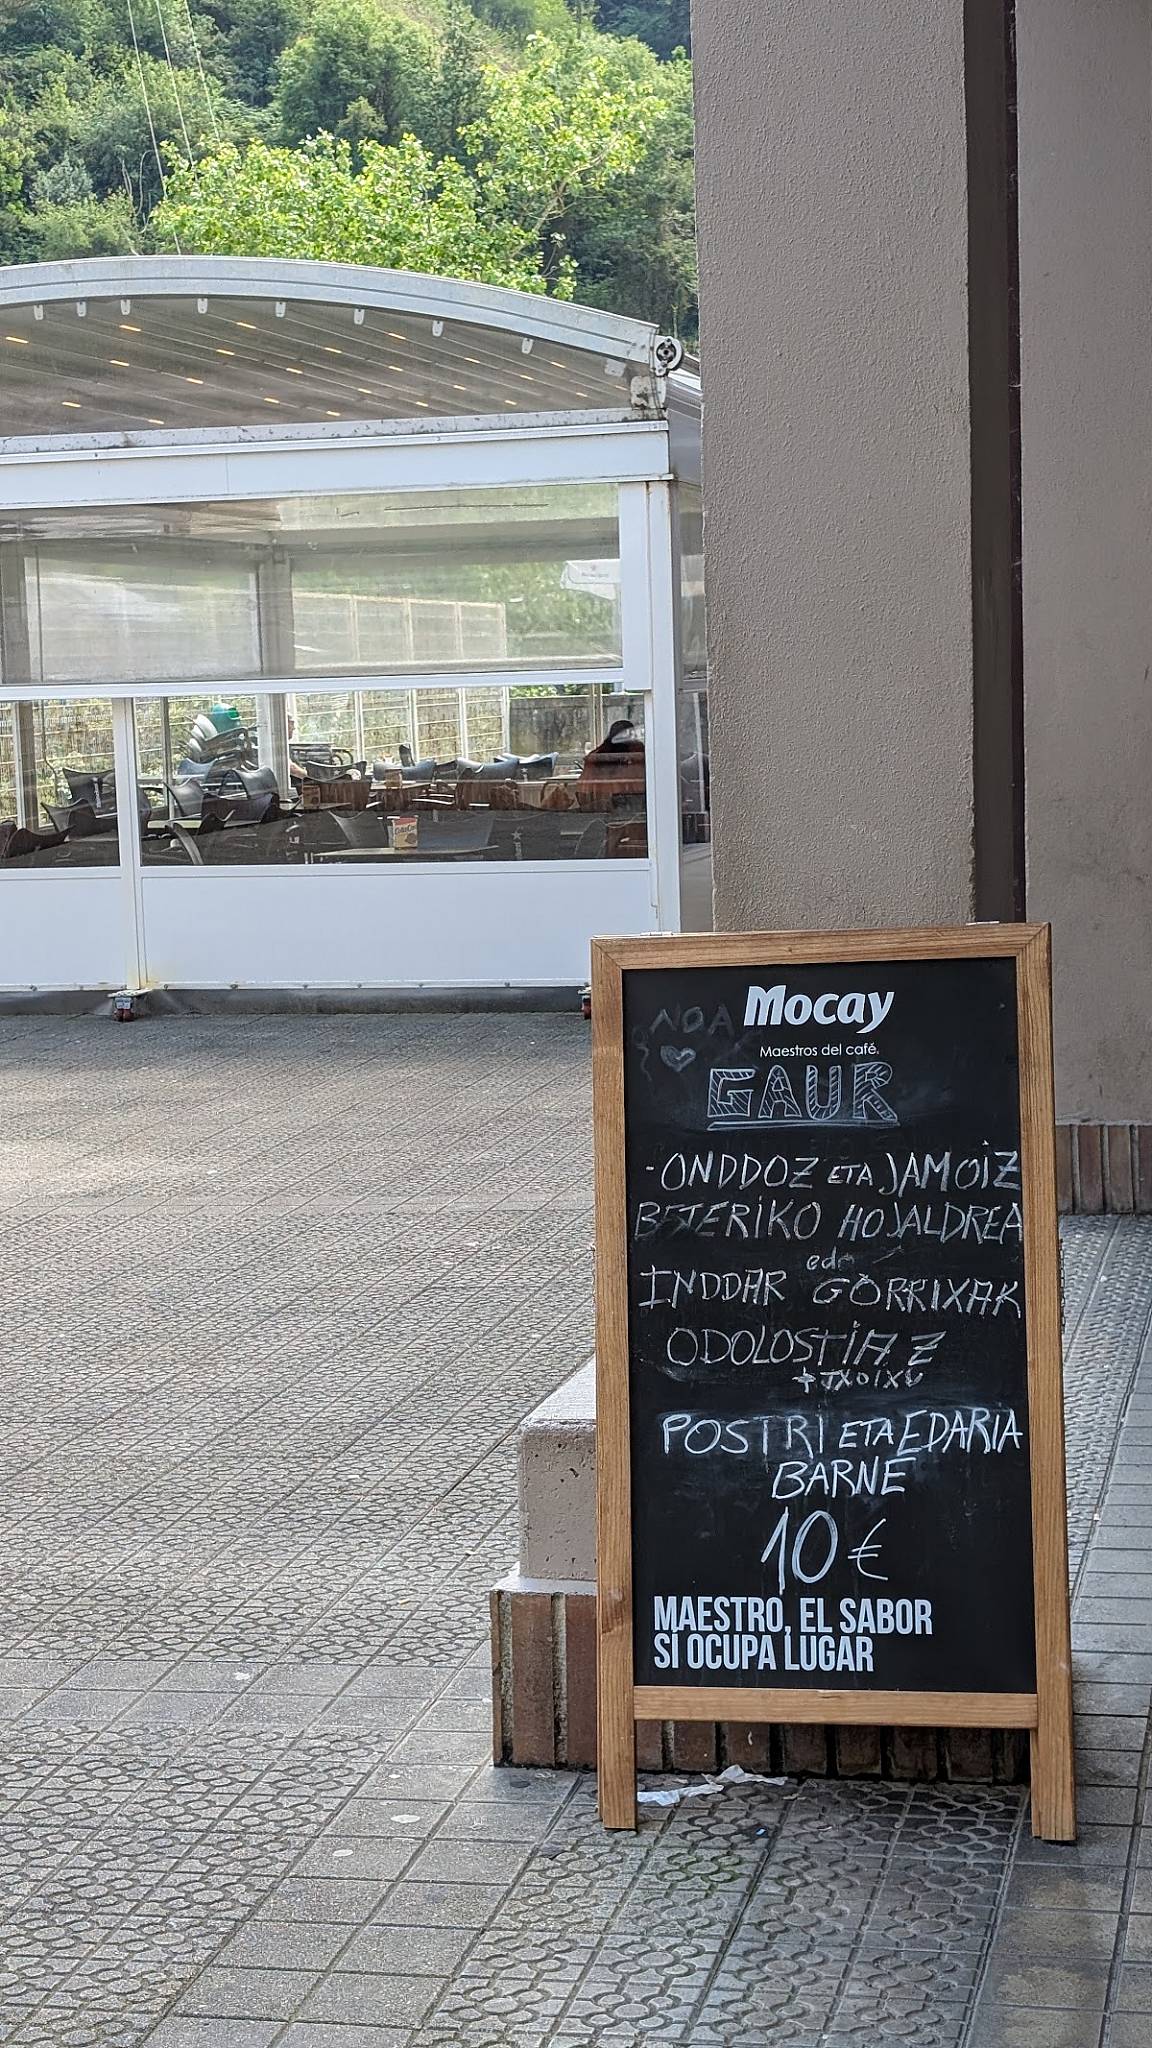 NOA
Mocay
Maestros del café.
GAUR
-ONDDOZ ETA JAMOIZ
BETERIKO HOJALDREA
edo
INDDAR GORRIXAK
ODOLOSTIAZ
+ TXOIXU
POSTRI ETA EDARIA
BARNE
10 €
MAESTRO, EL SABOR
SÍ OCUPA LUGAR